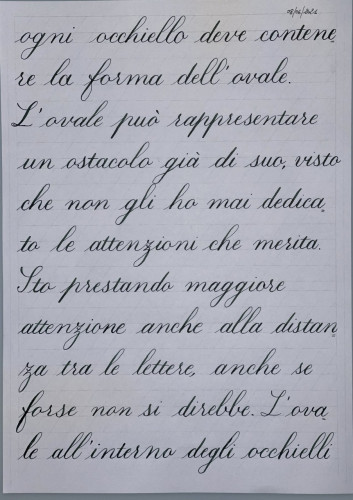 ogni occhiello deve contene
re la forma dell'ovale.
L'ovale può rappresentare
un ostacolo già di suo, visto
che non gli ho mai dedica
to le attenzioni che merita.
Sto prestando maggiore
attenzione anche alla distan
za tra le lettere, anche se
forse non si direbbe. L'ova
le all'interno degli occhielli